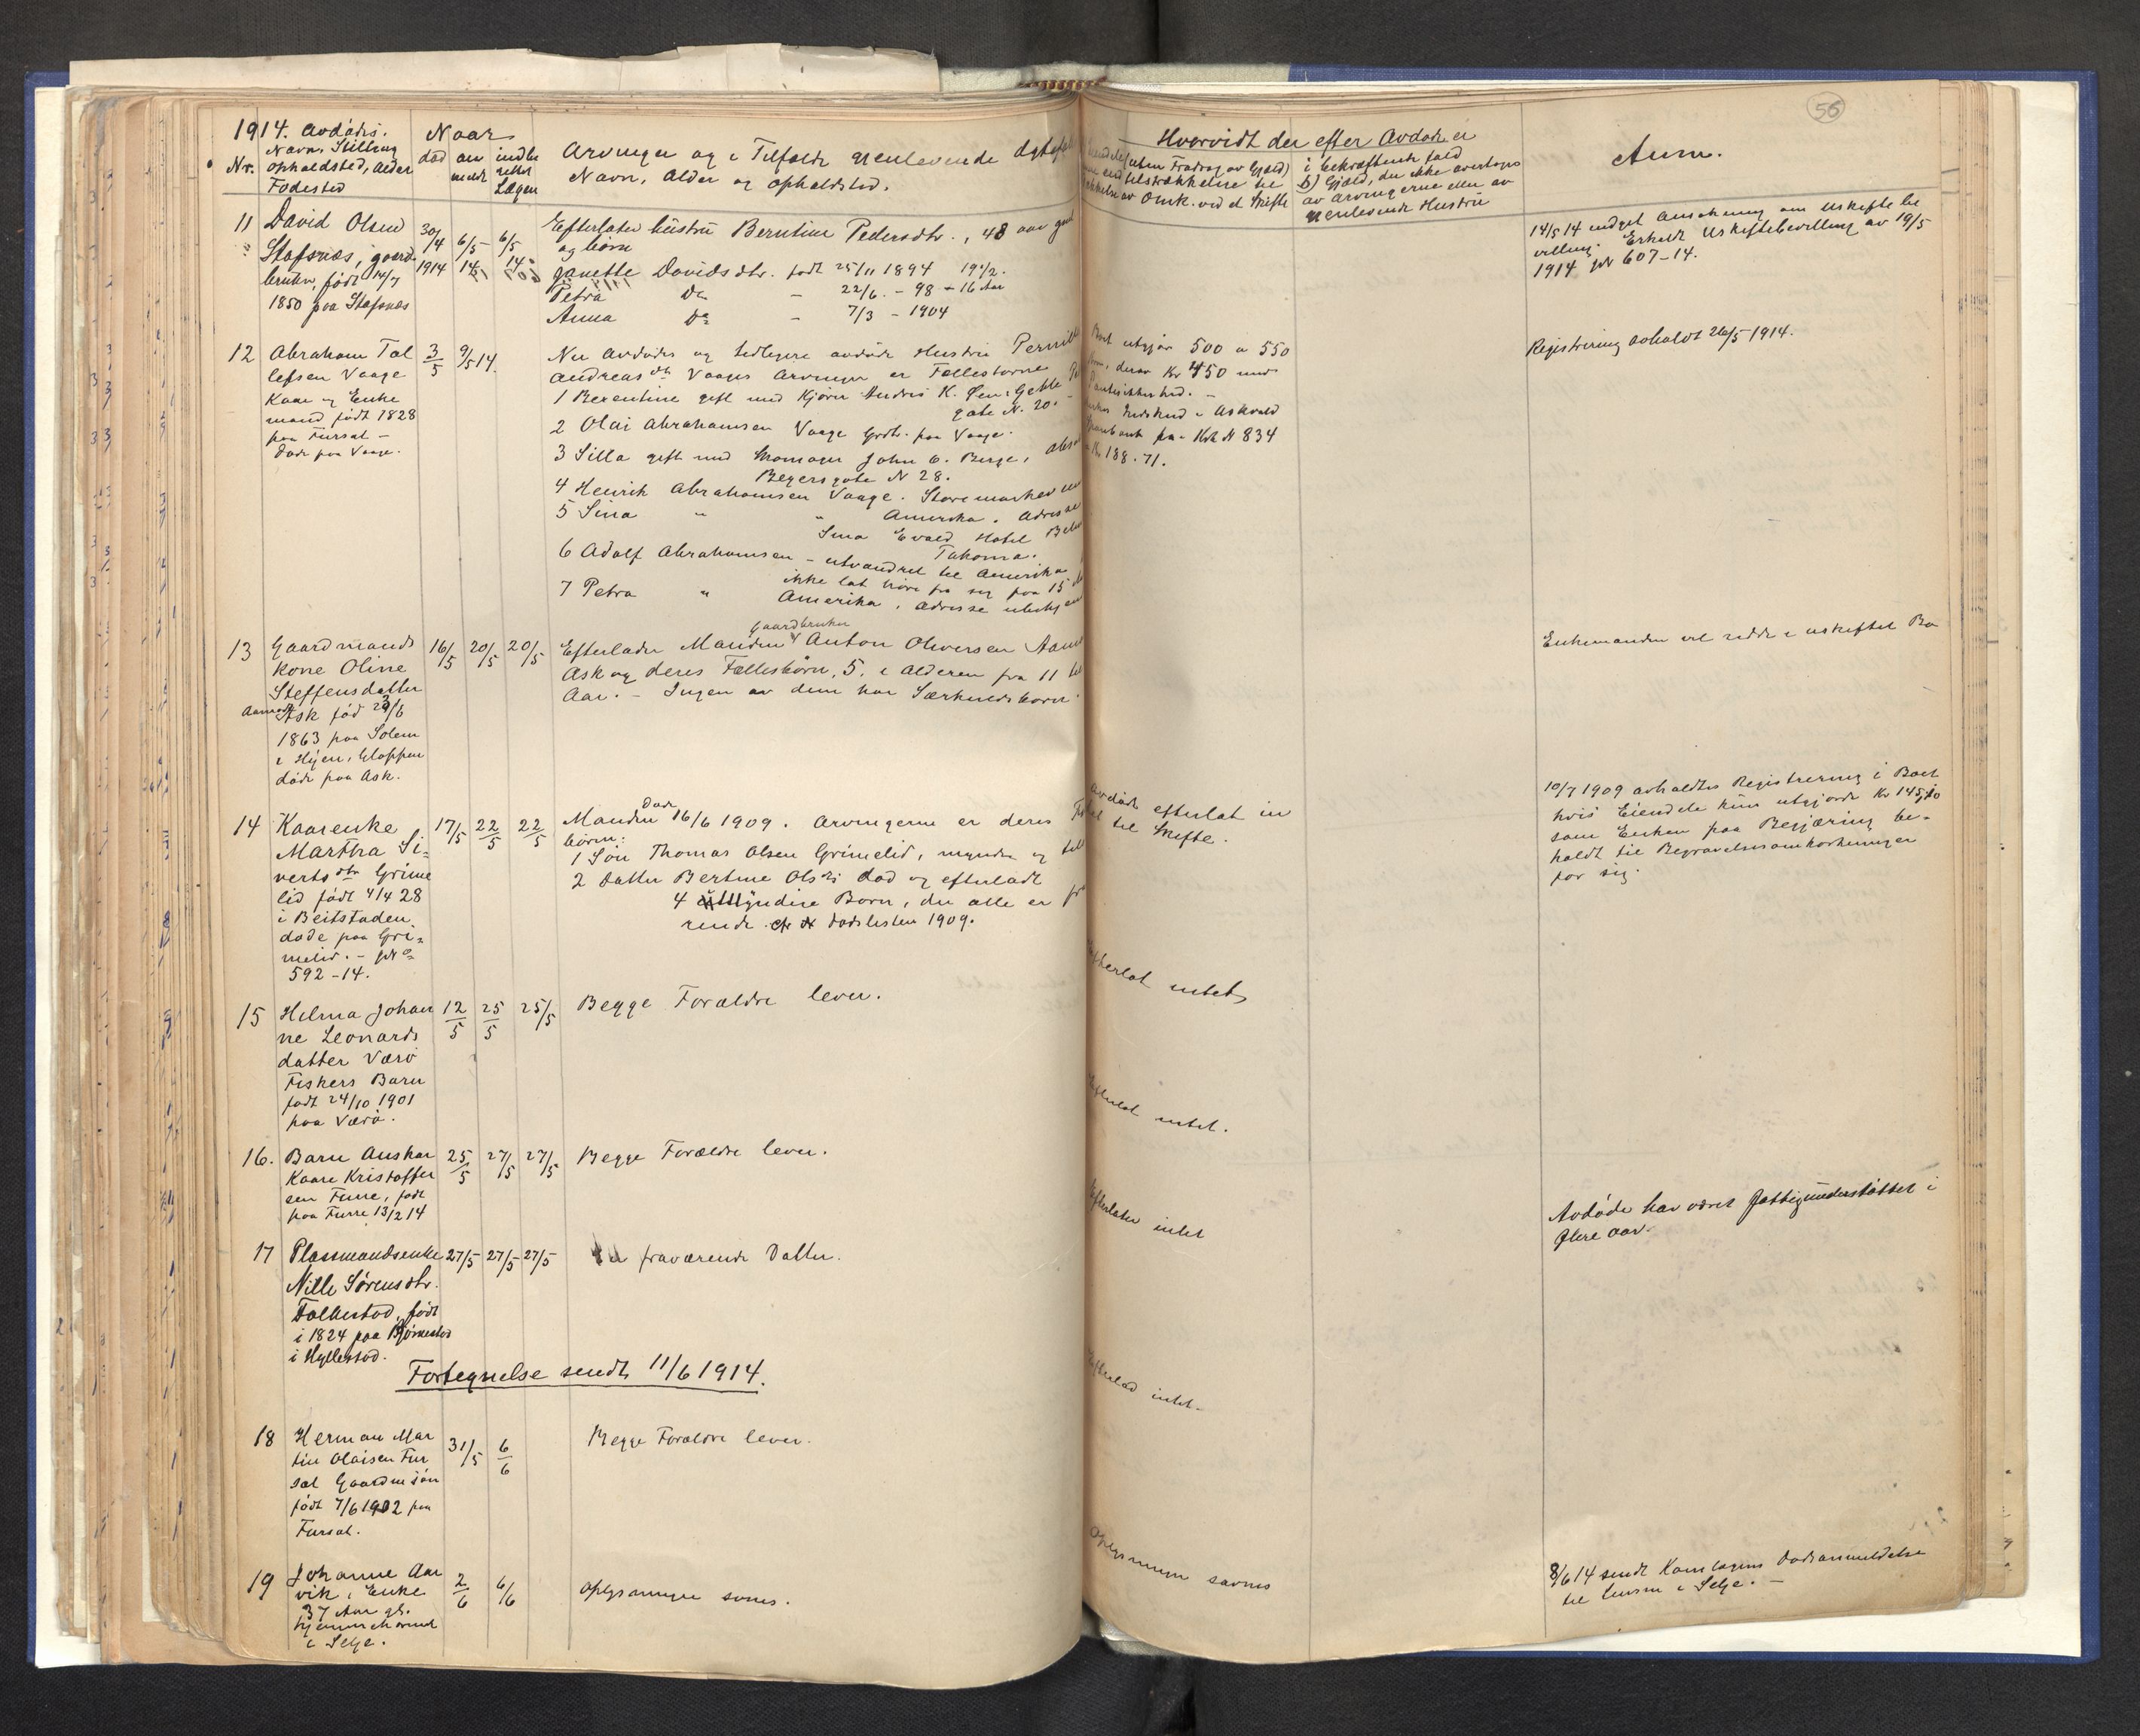 1914. Avdødes.
Navn, Stilling
Nr. opholdsted, alder
Fødested
Naar
død anmeldt indberettet Lægen
Arvinger og i Tilfælde gjenlevende
Navn, Alder og opholdsted.
11 David Olsen
Stafsnæs, gaard
bruker, født 14/7
1850 paa Stafsnæs
30/4 1914 6/5 14 6/5 14
Efterlater hustru Berntine Pedersdtr., 48 aar
og børn
Janette Davidsdtr. født 25/11 1894 19 1/2.
Petra Do - 22/6. - 98 - 16 Aar
Anna Do - 7/3 - 1904
12 Abraham Tol
lefsen Vaage
Kaar og Enke
mand født 1828
paa Fursæt -
døde paa Vaage.
3/5 9/5 14.
Nu avdødes og tidligere avdøde Hustru
Andreasdtr Vaages Arvinger er Fællesbørne
1 Berentine gift med Kjører Andreis K.
gate N. 20.
2 Olai Abrahamsen Vaage Grdb. paa Vaage.
3 Silla gift med Skomager John O. Berge,
Beyersgate N 28.
4 Henrik Abrahamsen Vaage.
5 Sina " " Amerika. Adresse
Sina Evald Hotel
Takoma.
6 Adolf Abrahamsen - utvandret til Amerika
ikke lat høre fra sig paa 15
7 Petra " Amerika, adresse
13 Gaardmands
kone Oline
Steffensdatter
Ask fød 23/6
1863 paa Solem
i Hyen, Gloppen
døde paa Ask.
16/5 20/5 20/5
gaardbruker
Efterlader Manden Anton Oliversen
Ask og deres Fællesbørn, 5, i Alderen fra 11 til
Aar. - Ingen av dem har Særkuldsbørn.
14 Kaarenke
Martha Si-
vertsdtr Grime
lid født 4/4 28
i Beitstaden
døde paa Gri-
melid. -
592-14.
17/5 22/5 22/5
Død
Manden 16/6 1909. Arvingerne er deres
børn:
1 Søn Thomas Olsen Grimelid, myndig og
2 Datter Bertine Olsdtr død og efterladt
4 umyndige Børn, der alle er
rende. dødslisten 1909.
15 Helma Johan
ne Leonards
datter Værø
Fiskers Barn
født 24/10 1901
paa Værø.
12/5 25/5 25/5
Begge Forældre lever.
16. Barn Anskar
Kaare Kristoffer
sen Furre, født
paa Furre 13/2 14
25/5 27/5 27/5
Begge Forældre lever.
17 Plassmandsenke
Nille Sørensdtr.
Folkestad, født
i 1824 paa
i Hyllestad.
27/5 27/5 27/5
fraværende Datter.
Fortegnelse sendt 11/6 1914.
18 Herman Mar
tin Olaisen Fur
sæt Gaardm søn
født 7/6 1902 paa
Fursæt.
31/5 6/6
Begge Forældre lever.
19 Johanne Aar
vik, Enke
37 Aar gl.
hjemmehørende
i Selje.
2/6 6/6
Oplysninger savnes.
56
Hvorvidt der efter Avdøde er
(uten Fradrag av Gjæld)
tilstrækkelse til
av Omk. ved et Skifte
i bekræftende fald
b) Gjæld, der ikke overtages
av Arvingerne eller av
gjenlevende Hustru
Anm.
14/5 14 indget Ansøkning om Uskifte be
villing. Erholdt Uskiftebevilling av 19/5
1914 607-14.
Boet utgjør 500 a 550
derav Kr 450 mod
Pantsikkerhed. -
Indskud i Askvold
Sparebank paa Ktr N 834
Kr. 188.71.
Registrering avholdt 26/5 1914.
Enkemanden vil sidde i uskiftet Bo
Avdøde efterlot in
til Skifte.
10/7 1909 avholdtes Registrering i Boet
hvis Eiendele kun utgjorde Kr 145,10
som Enken paa Begjæring be-
holdt til Begravelsesomkostninger
for sig.
Efterlot intet
Efterlot intet.
Efterlater intet
Avdøde har været fattigunderstøttet i
flere aar.
Efterlod intet.
Oplysninger savnes
8/6 14 sendt Kom lægens Dødsanmeldelse
til Lensm i Selje. -